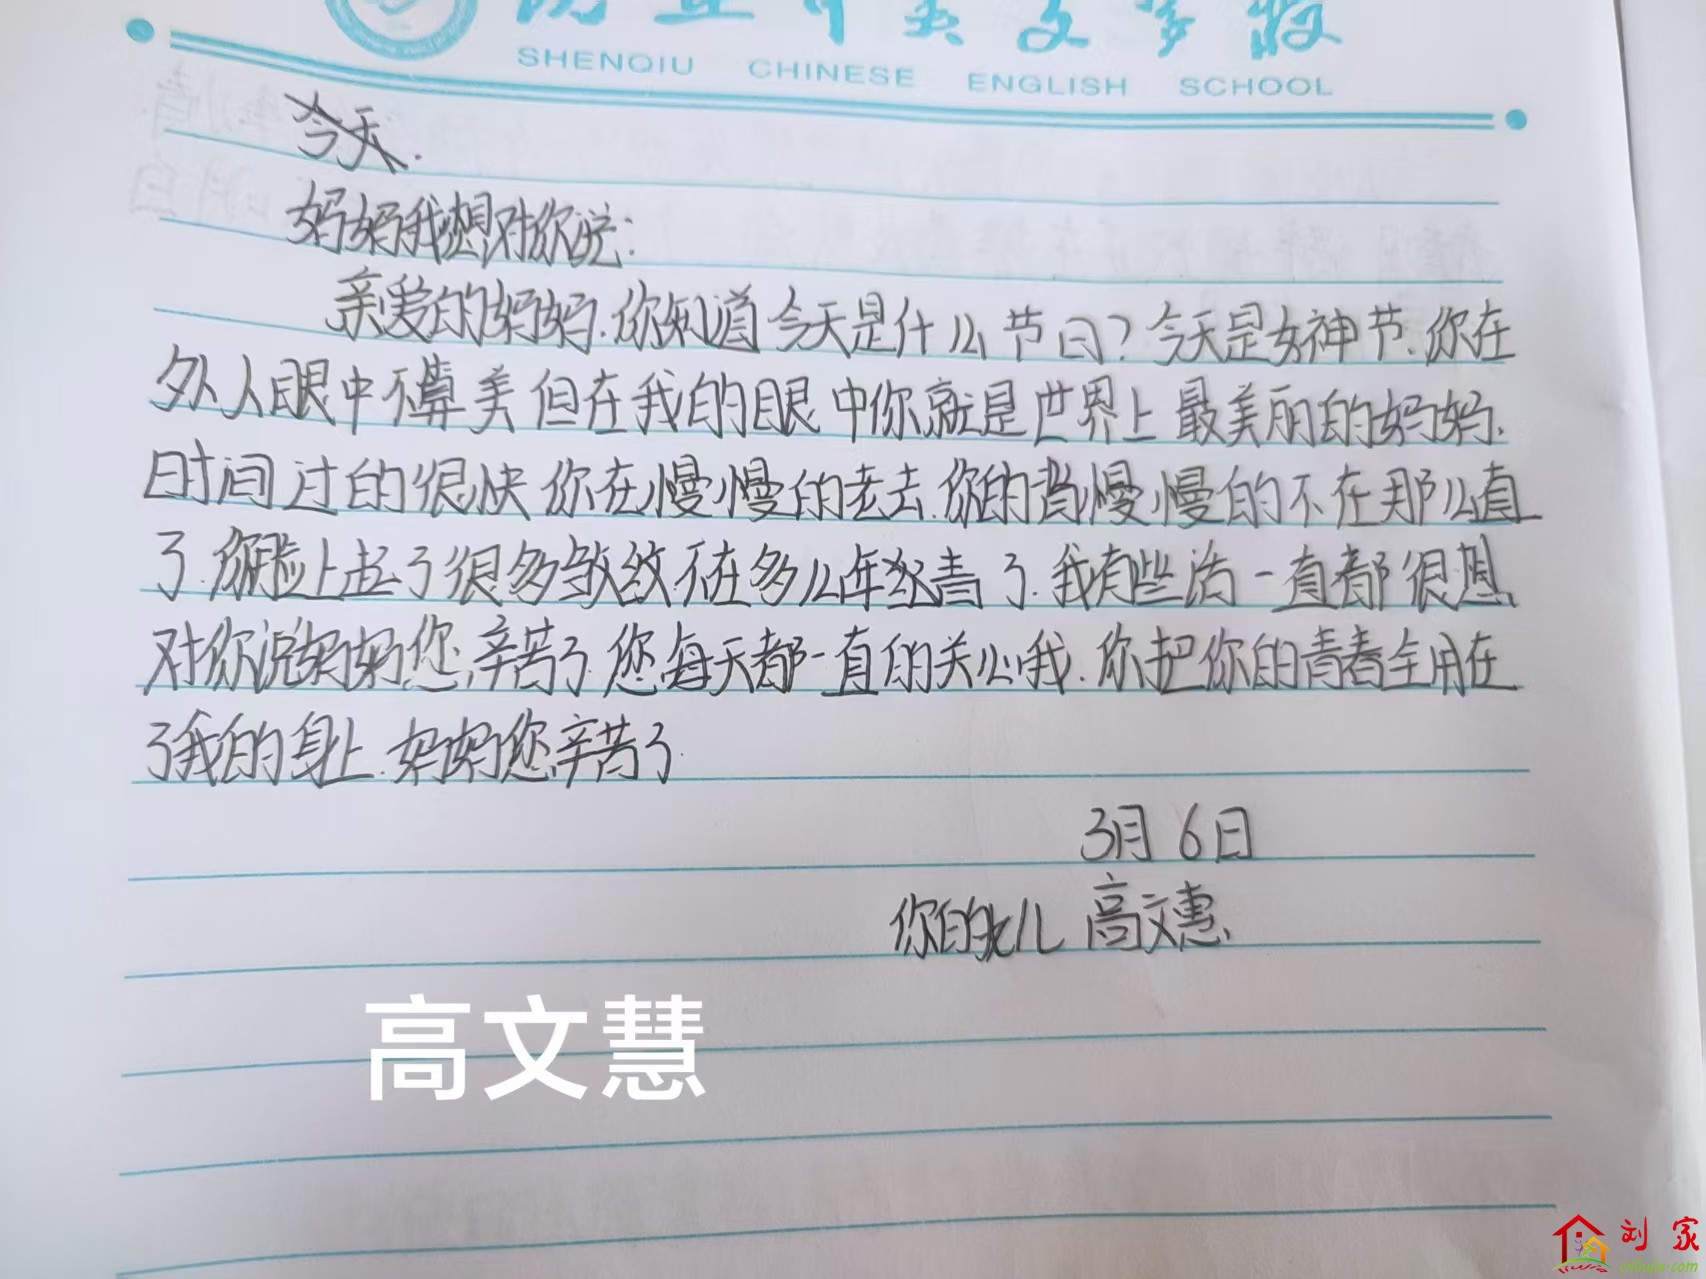 SHENQIU CHINESE ENGLISH SCHOOL
今天.
妈妈我想对你说:
亲爱的妈妈.你知道今天是什么节日?今天是女神节.你在
外人眼中不算美但在我的眼中你就是世界上最美丽的妈妈.
时间过的很快你在慢慢的老去.你的背慢慢的不在那么直
了.你脸上起了很多皱纹不在多么年轻了.我有些话一直都很想
对你说妈妈您辛苦了.您每天都一直的关心我.你把你的青春全用在
了我的身上.妈妈您辛苦了.
3月6日
你的女儿 高文惠
高文慧
刘家